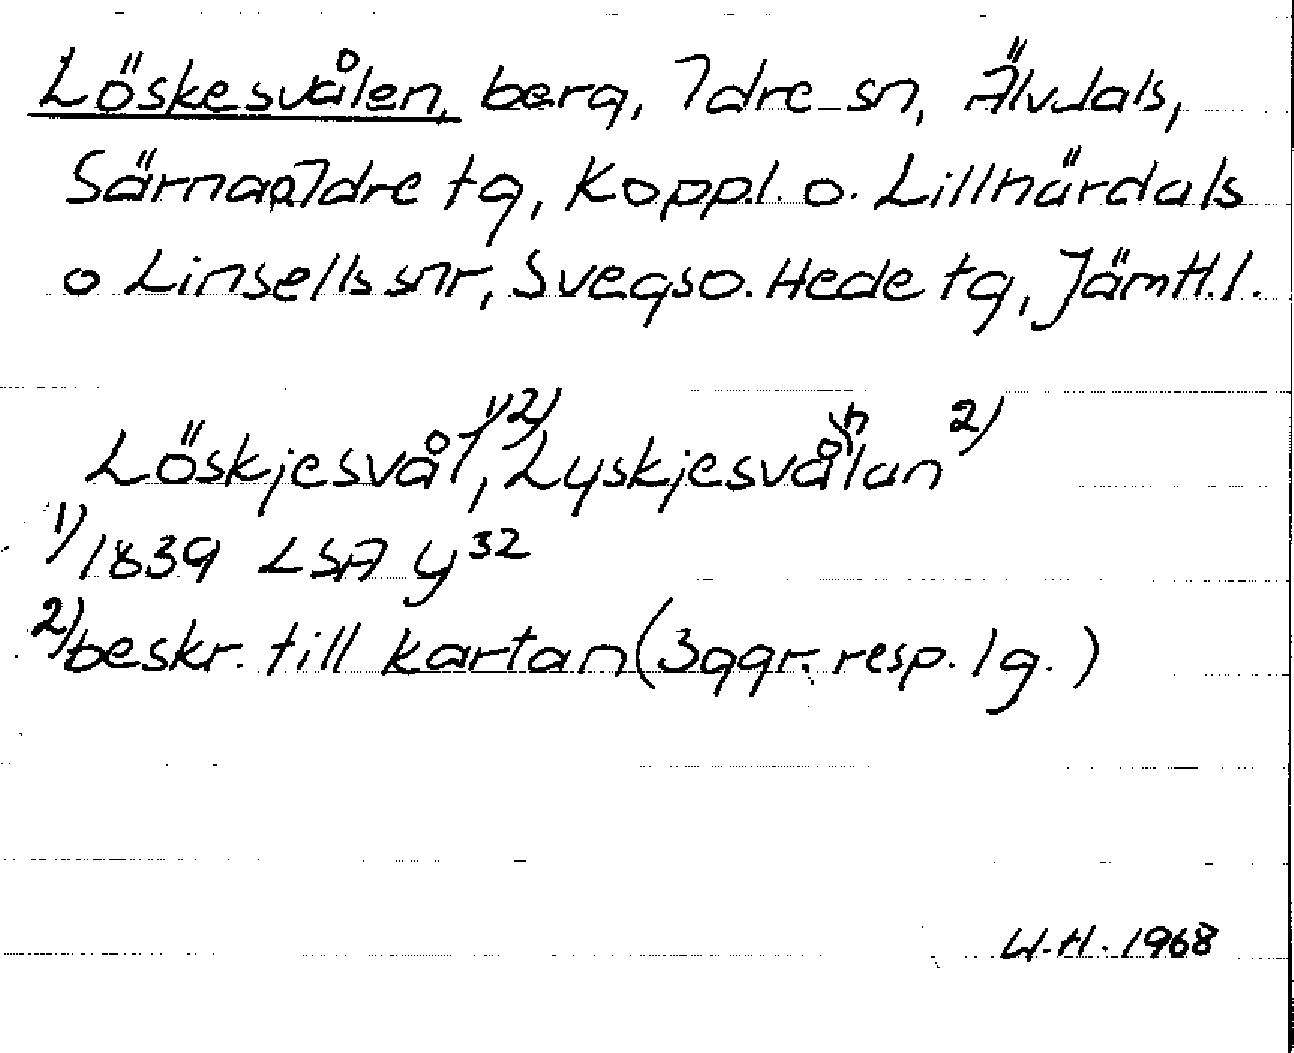 Löskesvålen, berg, Idre sn, Älvdals,
Särna o. Idre tg, Koppl. o. Lillhärdals
o Linsells snr, Svegs o. Hede tg, Jämtl. l.
Löskjesvål, 1) 2) Lyskjesvålan 2)
1) 1839 LSA y 32
2) beskr. till kartan (3 ggr. resp. 1 g.)
W.H. 1968